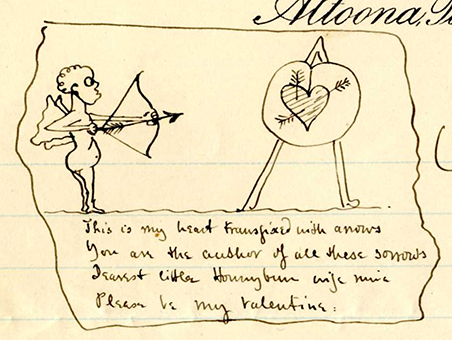 Altoona, P
This is my heart transfixed with arrows
You are the author of all these sorrows
Dearest little Hunnybun wife mine
Please be my Valentine.